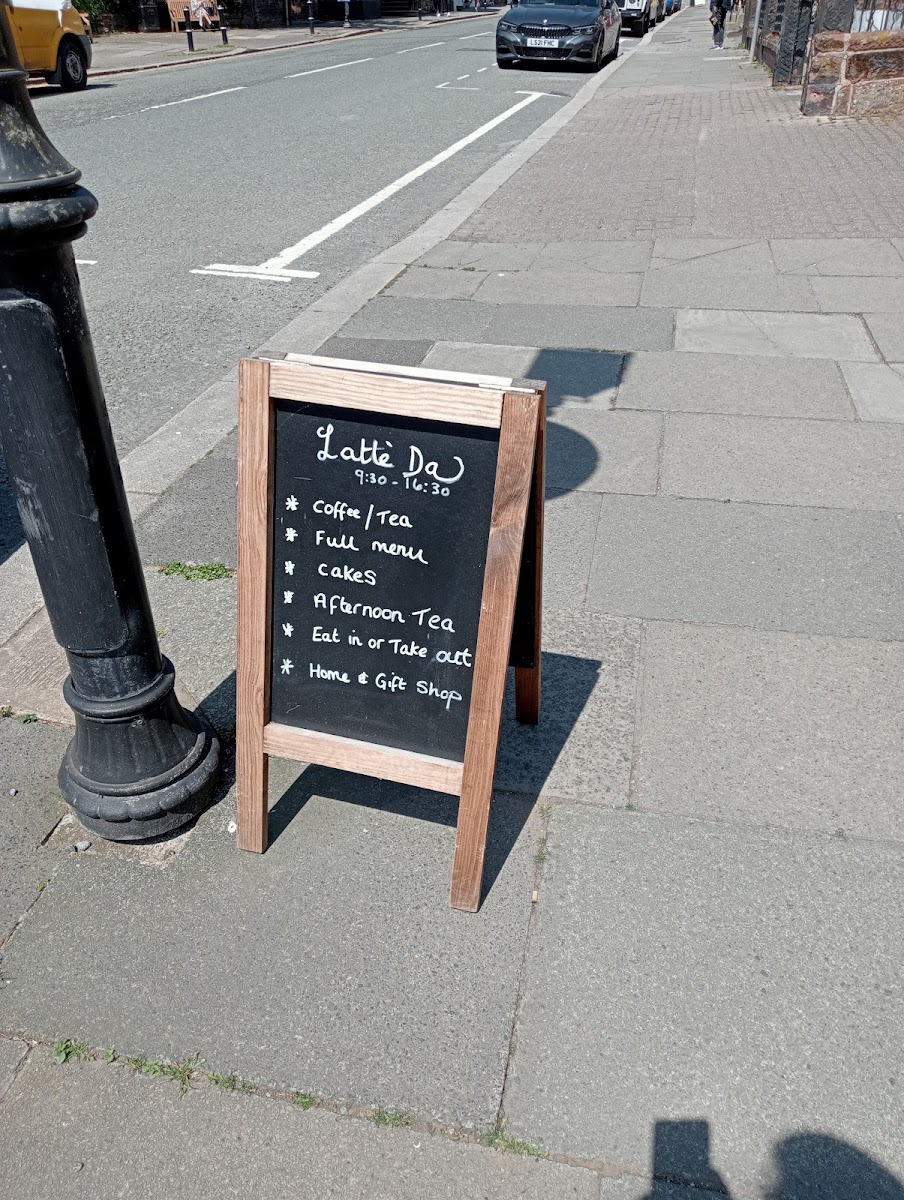 LS21 FHC
Lattè Da
9:30 - 16:30
* Coffee/Tea
* Full menu
* cakes
* Afternoon Tea
* Eat in or Take out
* Home & Gift Shop